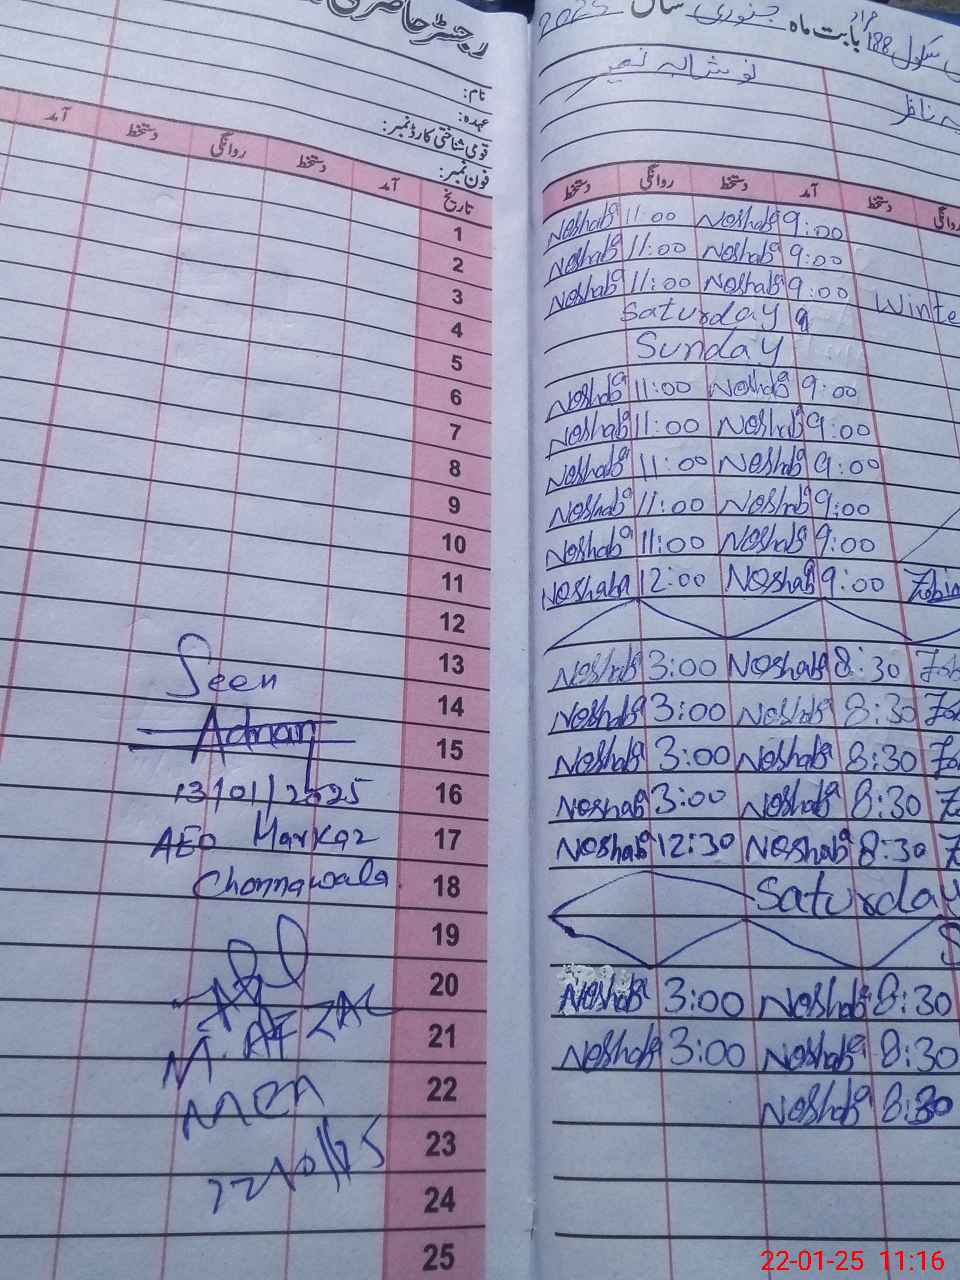 رجسٹر حاضری
نام:
عہدہ:
قومی شناختی کارڈ نمبر:
فون نمبر:
تاریخ آمد دستخط روانگی دستخط آمد
1
2
3
4
5
6
7
8
9
10
11
12
13
14
15
16
17
18
19
20
21
22
23
24
25
Seen
Adnan
13/01/2025
AEO Markaz
Chonnawala
M. AFZAL
MEA
22/01/25
بابت ماہ جنوری سال 2025
سکول 188 مراد
دستخط روانگی دستخط آمد دستخط روانگی
Noshaba 11:00 Noshaba 9:00
Noshaba 11:00 Noshaba 9:00
Noshaba 11:00 Noshaba 9:00 Winte
Saturday
Sunday
Noshaba 11:00 Noshaba 9:00
Noshaba 11:00 Noshaba 9:00
Noshaba 11:00 Noshaba 9:00
Noshaba 11:00 Noshaba 9:00
Noshaba 11:00 Noshaba 9:00
Noshaba 12:00 Noshaba 9:00
Noshaba 3:00 Noshaba 8:30
Noshaba 3:00 Noshaba 8:30
Noshaba 3:00 Noshaba 8:30
Noshaba 3:00 Noshaba 8:30
Noshaba 12:30 Noshaba 8:30
Saturday
S
Noshaba 3:00 Noshaba 8:30
Noshaba 3:00 Noshaba 8:30
Noshaba 8:30
22-01-25 11:16